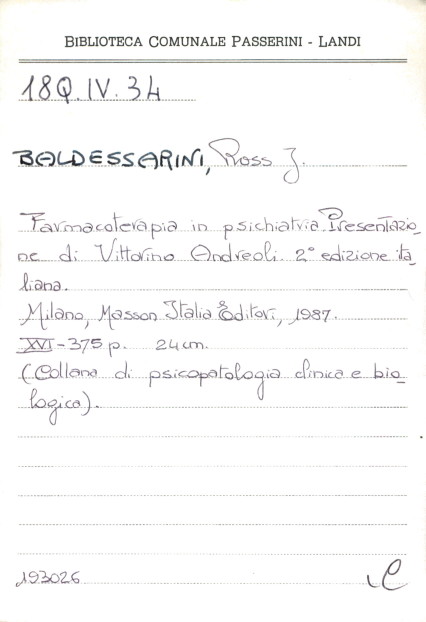 BIBLIOTECA COMUNALE PASSERINI - LANDI
18Q.IV.34
BALDESSARINI, Ross J.
Farmacoterapia in psichiatria. Presentazio_
ne di Vittorino Andreoli. 2° edizione ita_
liana.
Milano, Masson Italia Editori, 1987.
XVI-375 p. 24 cm.
(Collana di psicopatologia clinica e bio_
logica).
193026